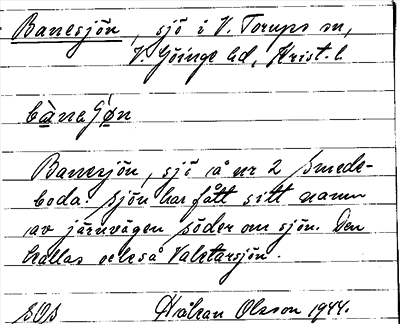 Banesjön, sjö i V. Torups sn,
V. Göinge hd, Krist. l.
bànaʃön
Banesjön, sjö å nr 2 Smeds-
boda. Sjön har fått sitt namn
av järnvägen söder om sjön. Den
kallas också Valstarsjön.
SOs Håkan Olsson 1944.